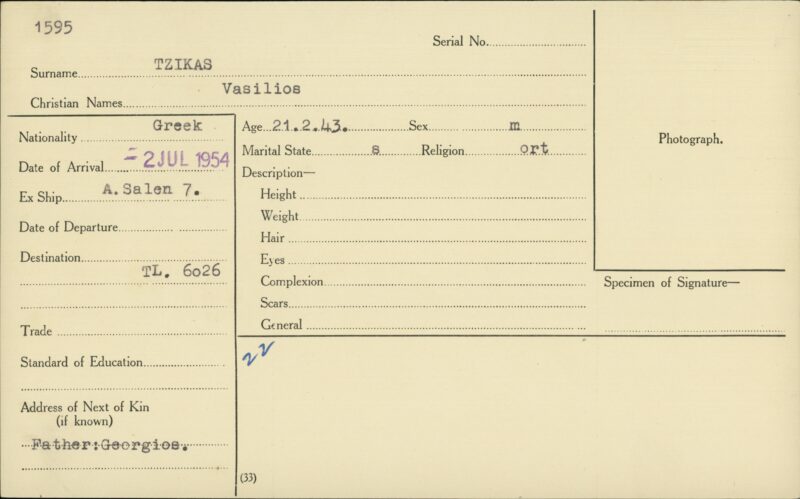 1595
Serial No.
Surname TZIKAS
Christian Names Vasilios
Nationality Greek
Date of Arrival - 2 JUL 1954
Ex Ship A.Salen 7.
Date of Departure
Destination
TL. 6026
Trade
Standard of Education
Address of Next of Kin
(if known)
Father:Georgios.
Age 21.2.43. Sex m
Marital State s Religion ort
Description—
Height
Weight
Hair
Eyes
Complexion
Scars
General
22
(33)
Photograph.
Specimen of Signature—